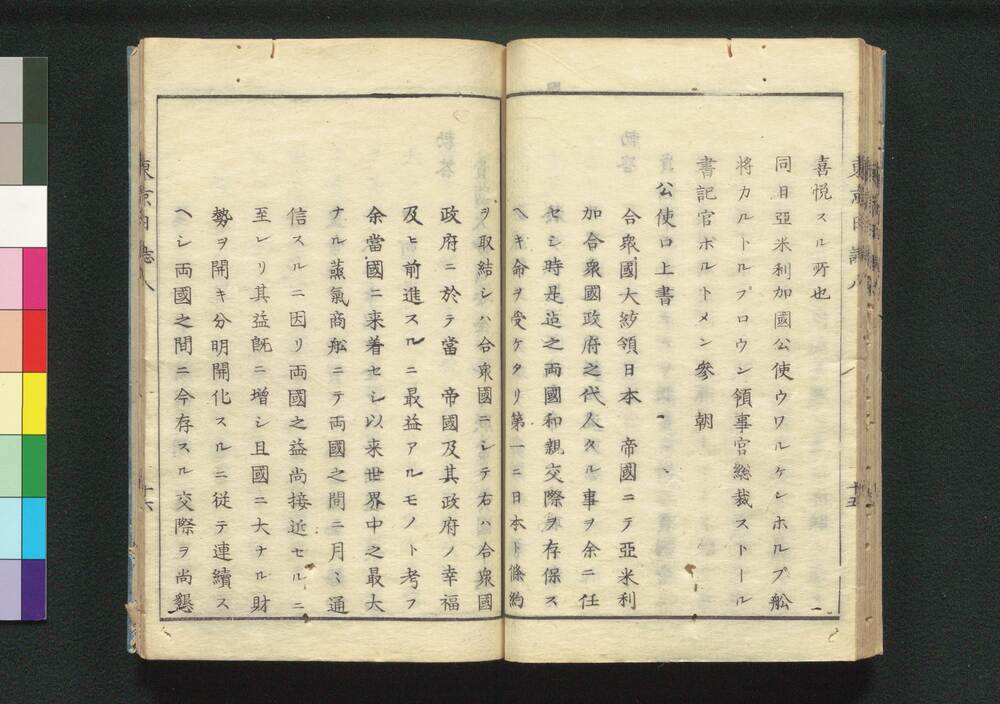 喜悦スル所也
同日亞米利加國公使ウワルケンホルプ舩
將カルトルプロウン領事官総裁ストール
書記官ボルトメン參　朝
公使口上書
合衆國大統領日本　帝國ニテ亞米利
加合衆國政府之代人タル事ヲ余ニ任
セシ時是迄之両國和親交際ヲ存保ス
ヘキ命ヲ受ケタリ第一ニ日本ト條約
ヲ取結シハ合衆國ニシテ右ハ合衆國
政府ニ於テ當　帝國及其政府ノ幸福
及ヒ前進スルニ最益アルモノト考フ
余當國ニ来着セシ以来世界中之最大
ナル蒸氣商舩ニテ両國之間ニ月々通
信スルニ因リ両國之益尚接近セルニ
至レリ其益既ニ増シ且國ニ大ナル財
勢ヲ開キ分明開化スルニ従テ連續ス
ヘシ両國之間ニ今存スル交際ヲ尚懇
東京日誌八
十六